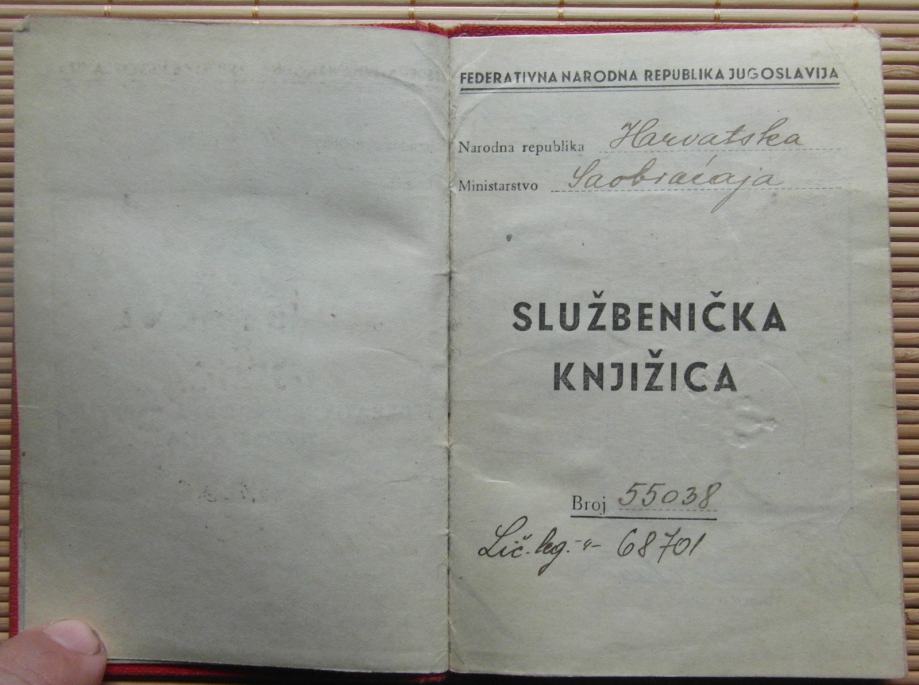 FEDERATIVNA NARODNA REPUBLIKA JUGOSLAVIJA
Narodna republika Harvatska
Ministarstvo Saobraćaja
SLUŽBENIČKA
KNJIŽICA
Broj 55038
Lič. leg. -"- 68701